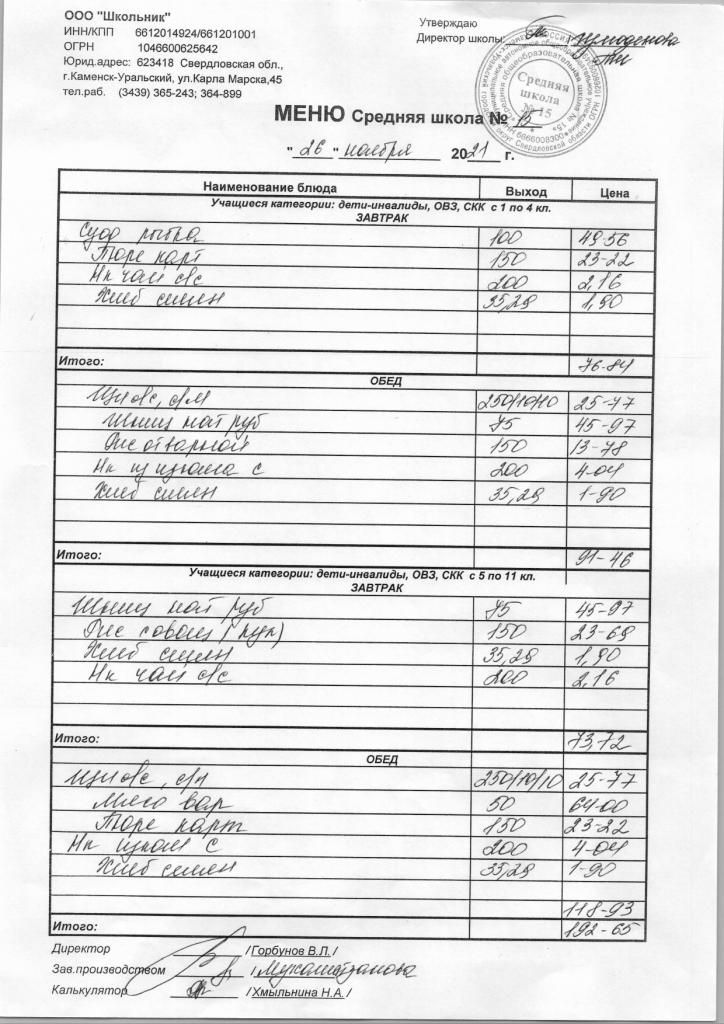 ООО "Школьник"
ИНН/КПП 6612014924/661201001
ОГРН 1046600625642
Юрид.адрес: 623418 Свердловская обл.,
г.Каменск-Уральский, ул.Карла Маркса,45
тел.раб. (3439) 365-243; 364-899
Утверждаю
Директор школы:
Средняя
школа
№ 15
МЕНЮ Средняя школа № 15
"26" ноября 2021 г.
Наименование блюда Выход Цена
Учащиеся категории: дети-инвалиды, ОВЗ, СКК с 1 по 4 кл.
ЗАВТРАК
рыба 100 49-56
Пюре карт 150 23-22
Нк чай с/с 200 2,16
Хлеб 35,29 1,90
Итого: 76-84
ОБЕД
250/10/10 25-77
нат руб 75 45-97
Рис отварной 150 13-78
Нк из изюма с 200 4-04
Хлеб 35,29 1-90
Итого: 91-46
Учащиеся категории: дети-инвалиды, ОВЗ, СКК с 5 по 11 кл.
ЗАВТРАК
нат руб 75 45-97
Рис с овощ 150 23-69
Хлеб 35,29 1,90
Нк чай с/с 200 2,16
Итого: 73,72
ОБЕД
250/10/10 25-77
Мясо вар 50 64-00
Пюре карт 150 23-22
Нк изюм с 200 4-04
Хлеб 35,29 1-90
118-93
Итого: 192-65
Директор /Горбунов В.Л./
Зав.производством /
Калькулятор /Хмыльнина Н.А./